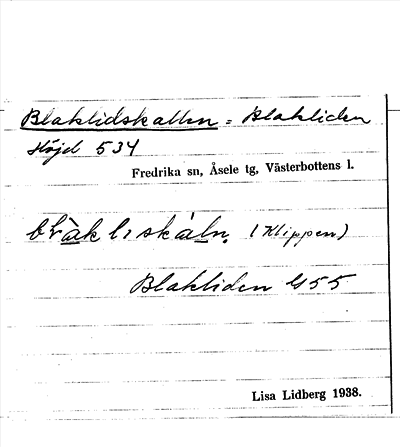 Blaklidskallen = Blakliden
Höjd 534
Fredrika sn, Åsele tg, Västerbottens l.
(Klippen)
Blakliden 455
Lisa Lidberg 1938.